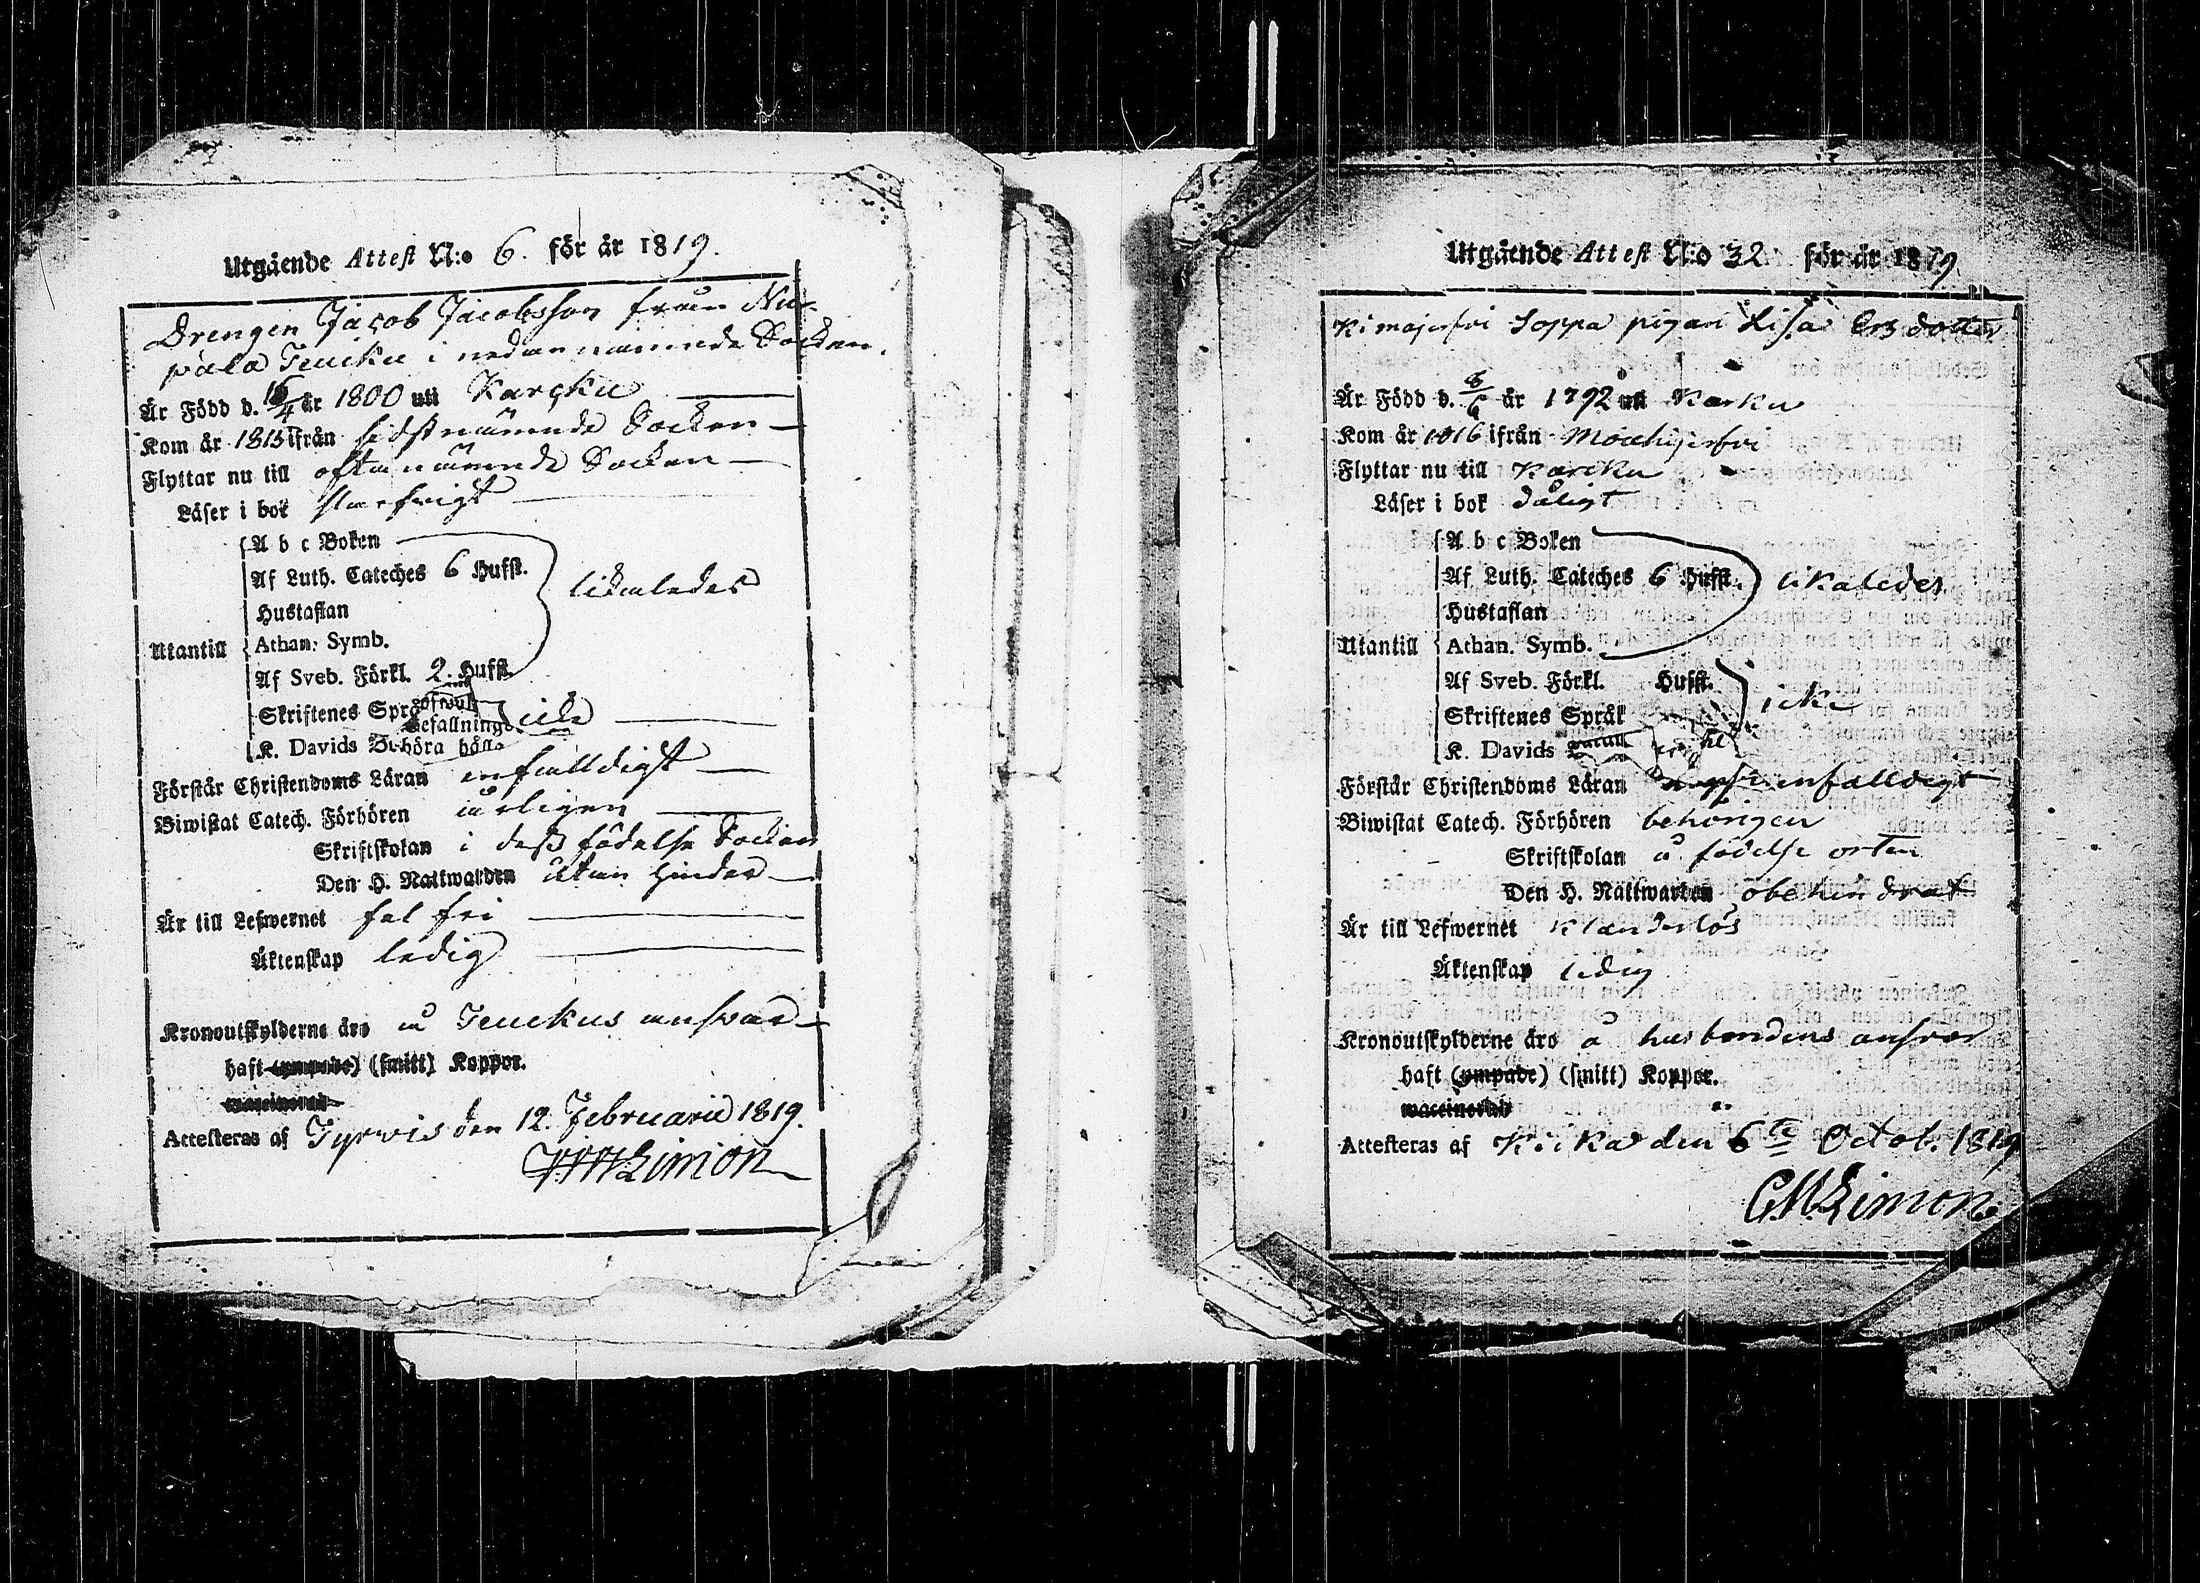 Utgående Attest N:o 6. för år 1819.
Drengen Jacob Jacobsson från Nu-
pala Jeucku i nedannämnde Socken.
Är Född d. 16/4 år 1800 uti Karcku
Kom år 1815 ifrån sidstnämnde Socken
Flyttar nu till oftanämnde Socken
Läser i bok slarfvigt
A b c Boken
Af Luth. Cateches 6 Hufst.
likaledes
Hustaflan
Utantill Athan. Symb.
Af Sveb. Förkl. 2. Hufst.
Skriftenes Språ
befallning
icke
K. Davids
höra hålla
Förstår Christendoms Läran enfalldigt
Biwistat Catech. Förhören årligen
Skriftskolan i dess födelse Socken
Den H. Nattwarden utan hinder
Är till Lefwernet fel fri
Äktenskap ledig
Kronoutskylderne äro å Jeuckus answar
haft (ympade) (smitt) Koppor.
waccinerad
Attesteras af Tyrvis den 12. Februarii 1819.
Limon
Utgående Attest N:o 32 för år 1819
Kimajerfvi Soppa pigan Lisa Ersdotter
Är Född d. 8/6 år 1792 uti Karku
Kom år 1816 ifrån Mouhijerfvi
Flyttar nu till Karcku
Läser i bok dåligt
A b c Boken
Af Luth. Cateches 6 Hufst.
likaledes
Hustaflan
Utantill Athan. Symb.
Af Sveb. Förkl. Hufst.
icke
Skriftenes Språk
K. Davids
Förstår Christendoms Läran enfalldigt
Biwistat Catech. Förhören behörigen
Skriftskolan å födelse orten
Den H. Nattwarden obehindrat
Är till Lefwernet klanderlös
Äktenskap ledig
Kronoutskylderne äro å husbondens answar
haft (ympade) (smitt) Koppor.
waccinerad
Attesteras af Kiika den 6te Octob. 1819
C.M. Limon